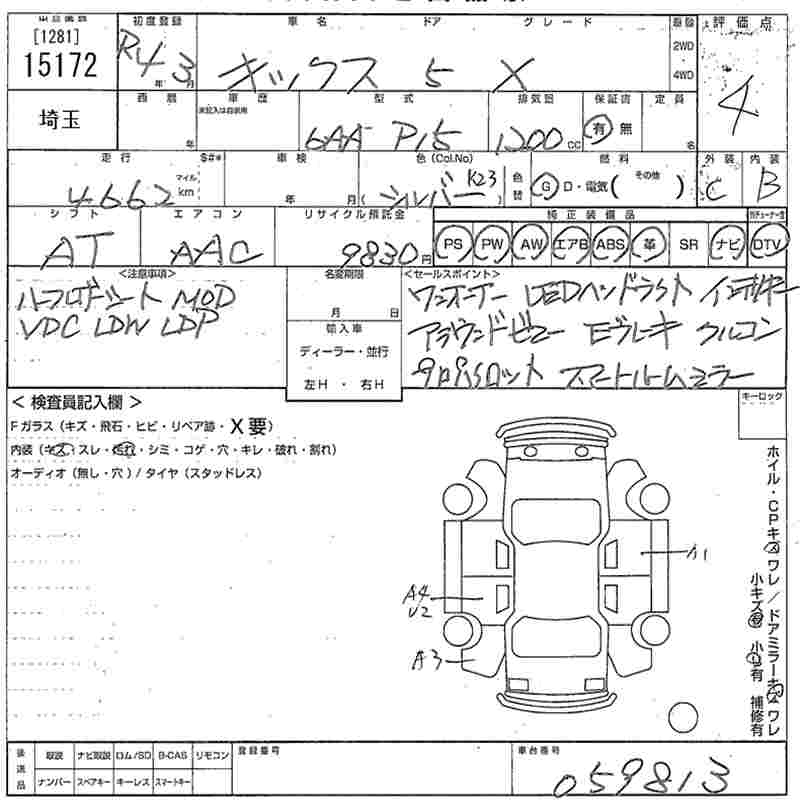 [1281]
15172
初度登録
R4 3
年 月
車名 ドア グレード
キックス 5 X
2WD
4WD
評価点
4
埼玉
西暦
年
車歴
未記入は自家用
型式
6AA P15
排気量
1200 cc
保証書
有 無
定員
名
走行
4662
マイル
km
$#*
車検
年 月
色(Col.No)
シルバー K23
色替
燃料
G D・電気( その他 )
外装
C
内装
B
シフト
AT
エアコン
AAC
リサイクル預託金
9830円
純正装備品
PS PW AW エアB ABS 革 SR ナビ DTV
<注意事項>
ハーフレザーシート MOD
VDC LDW LDP
名変期限
月 日
輸入車
ディーラー・並行
左H ・ 右H
<セールスポイント>
ワンオーナー LEDヘッドライト インテリキー
アラウンドビュー Eブレーキ クルコン
プロパイロット スマートルームミラー
< 検査員記入欄 >
Fガラス(キズ・飛石・ヒビ・リペア跡・X要)
内装(キズ・スレ・汚れ・シミ・コゲ・穴・キレ・破れ・割れ)
オーディオ(無し・穴)/タイヤ(スタッドレス)
キーロック
ホイル・CPキズ ワレ/ドアミラーキズ ワレ
小キズ有 小凹有 補修有
A1
A4
U2
A3
後送品
取説 ナビ取説 ロム/SD B-CAS リモコン
ナンバー スペアキー キーレス スマートキー
登録番号
車台番号
059813